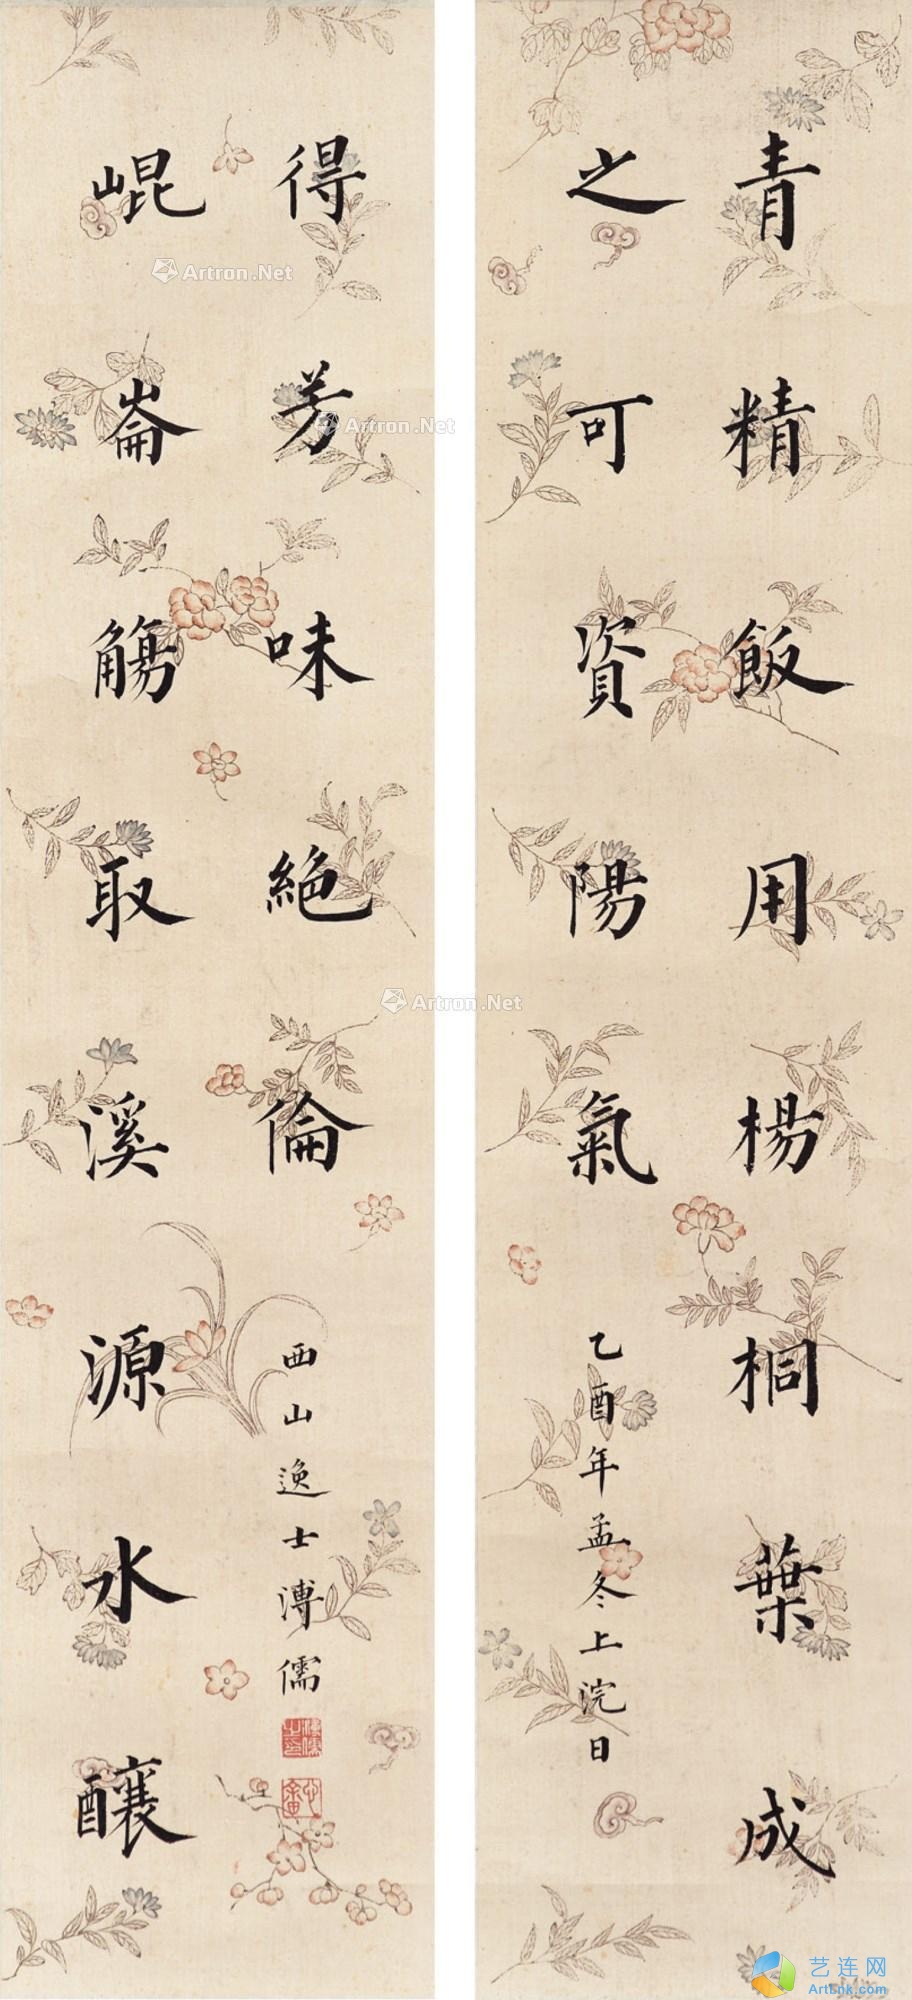 青精飯用楊桐葉成
之可資陽氣
乙酉年孟冬上浣日
崐崙觴取溪源水釀
得芳味絕倫
西山逸士溥儒
溥儒之印
心畬
Artron.Net
Artron.Net
Artron.Net
艺连网
ArtLnk.com